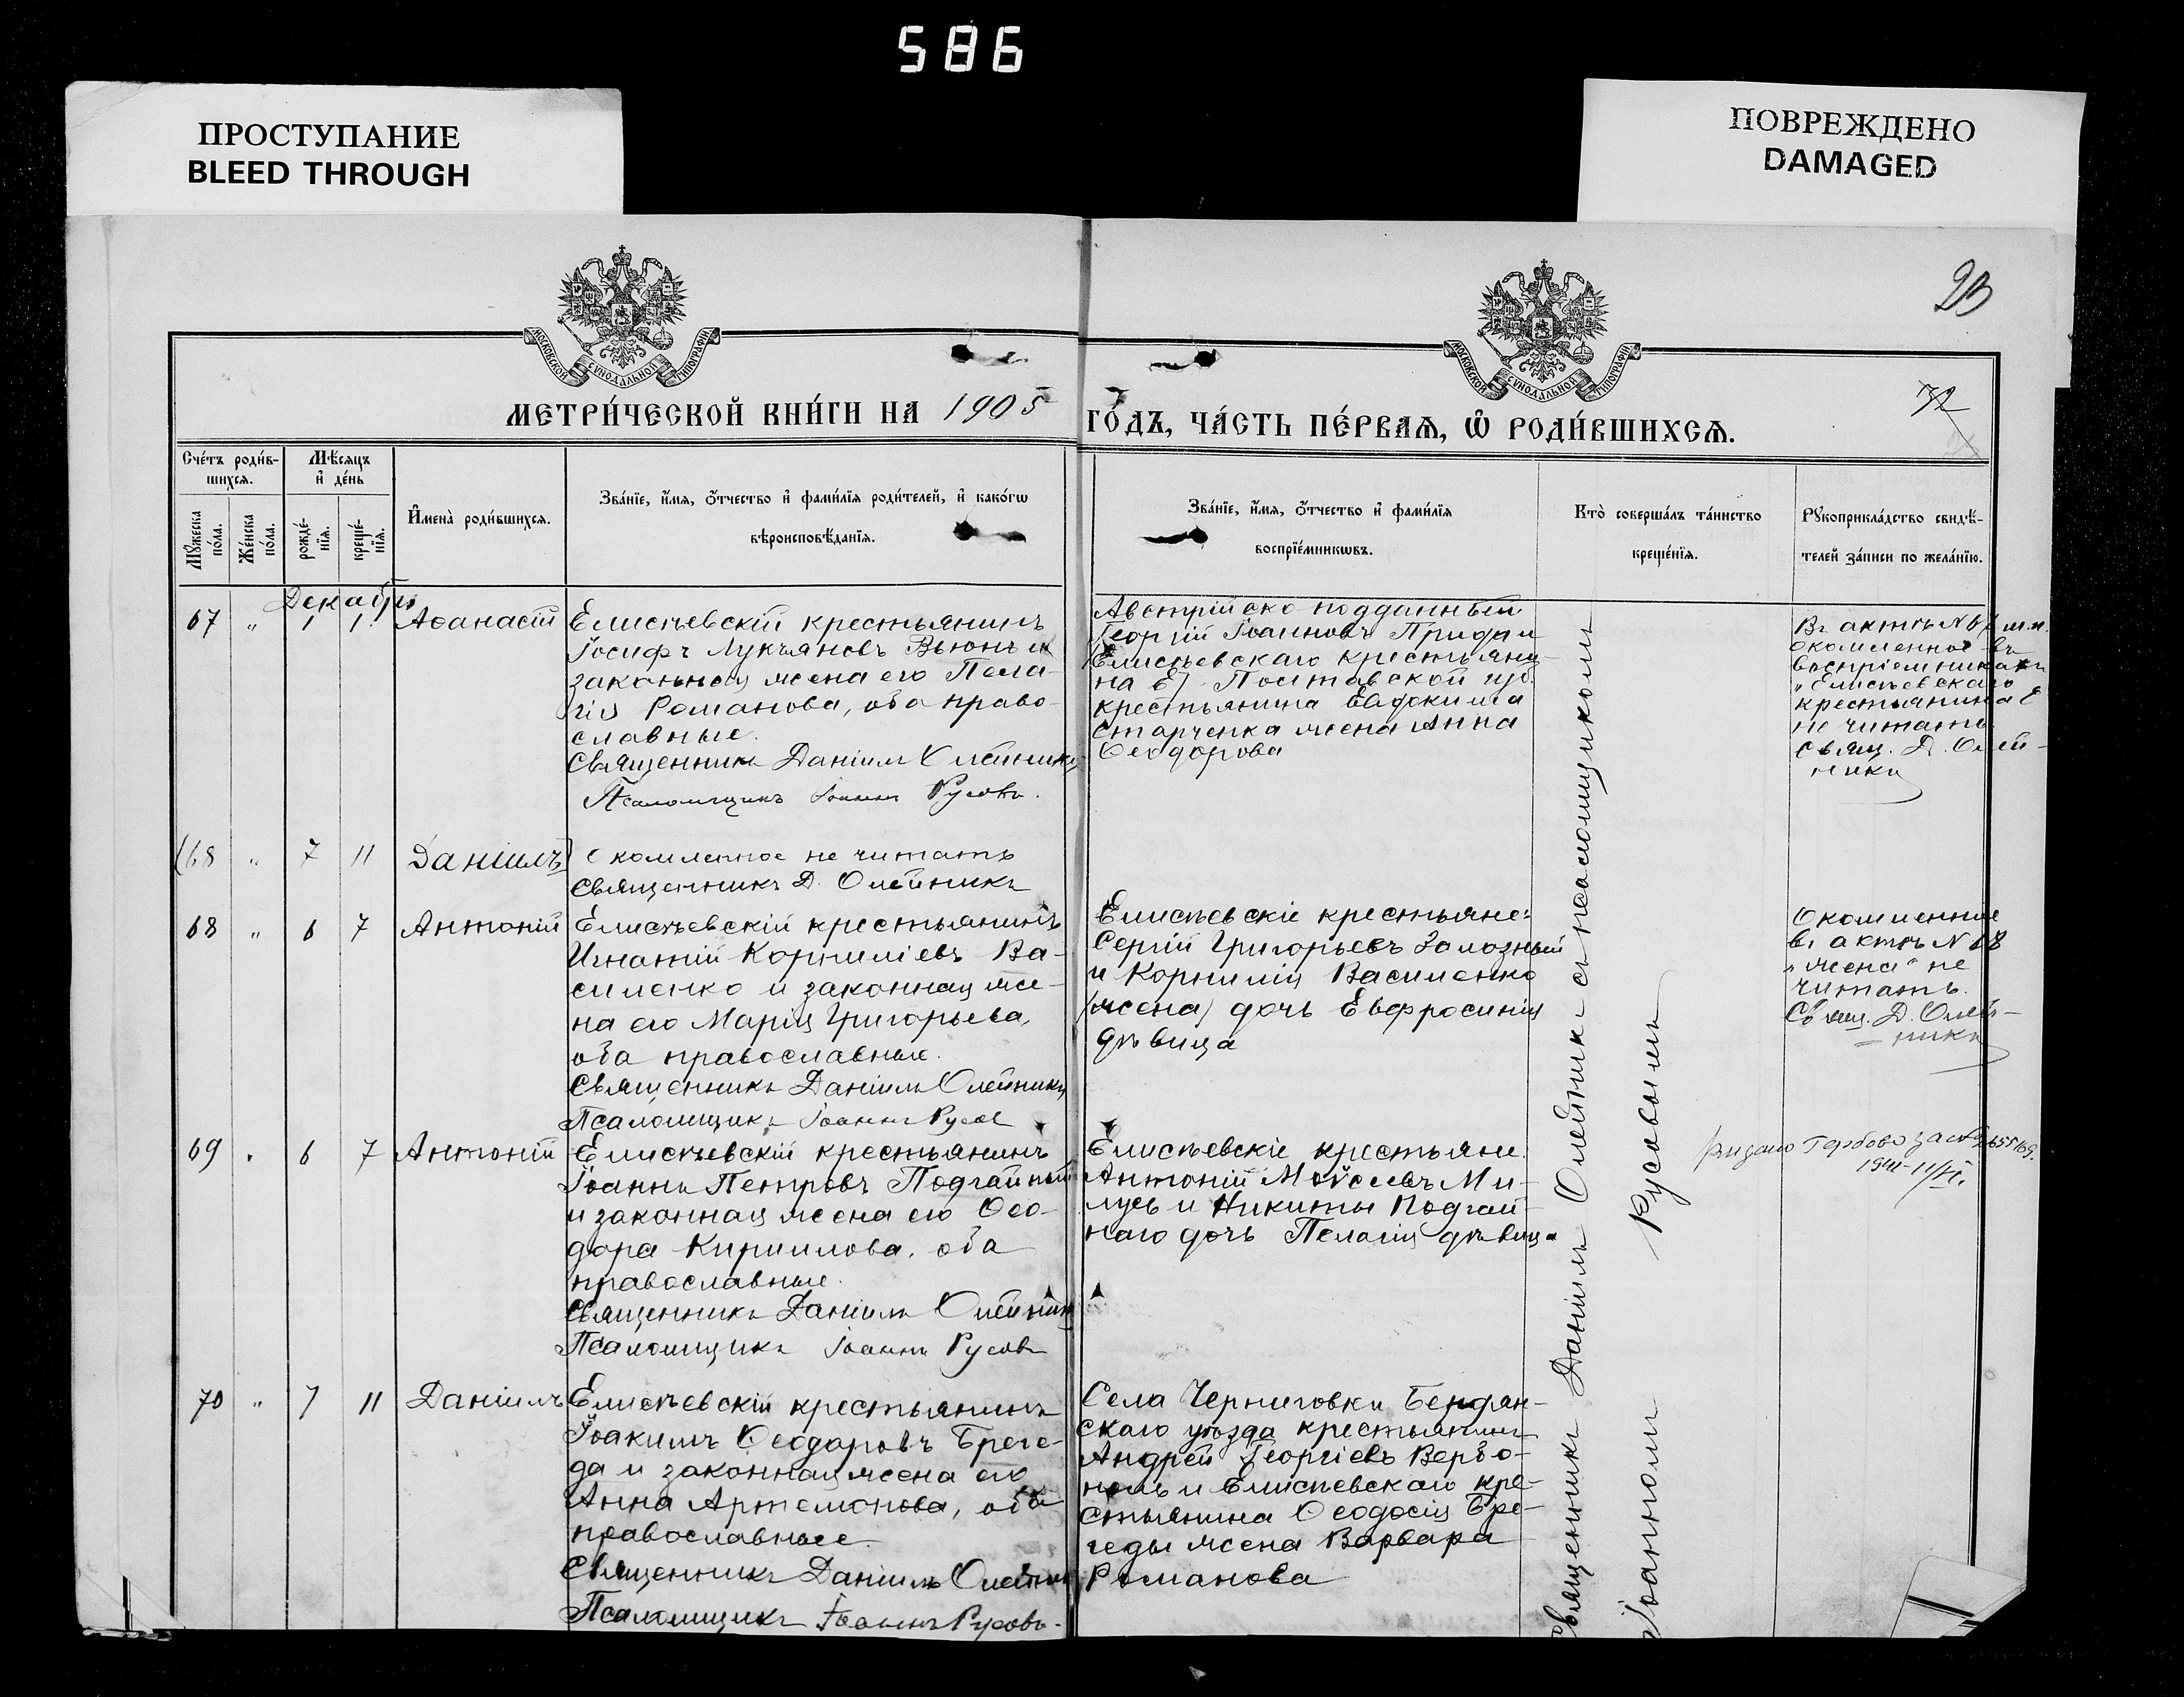 586
ПРОСТУПАНИЕ
BLEED THROUGH
ПОВРЕЖДЕНО
DAMAGED
23
МОСКОВСКОЙ СѴНОДАЛЬНОЙ ТИПОГРАФІИ
МОСКОВСКОЙ СѴНОДАЛЬНОЙ ТИПОГРАФІИ
МЕТРИ́ЧЕСКОЙ КНИ́ГИ НА 1905
ГО́ДЪ, ЧА́СТЬ ПЕ́РВАѦ, Ѽ РОДИ́ВШИХСѦ.
72
Сче́тъ роди́в-
шихсѧ.
Мꙋ́жеска
по́ла.
Же́нска
по́ла.
Мѣ́сѧцъ
и҆ де́нь
рожде́-
нїѧ.
креще́-
нїѧ.
И҆мена̀ роди́вшихсѧ.
Зва́нїе, и҆́мѧ, ѻ҆́тчество и҆ фами́лїѧ роди́телей, и҆ како́гѡ
вѣроисповѣ́данїѧ.
Зва́нїе, и҆́мѧ, ѻ҆́тчество и҆ фами́лїѧ
воспрїе́мникѡвъ.
Кто̀ соверша́лъ та́инство
креще́нїѧ.
Рꙋкоприкла́дство свидѣ́-
телей за́писи по жела́нїю.
Декабрь
67 " 1 1 Аѳанасій
Елисѣевскій крестьянинъ
Іосифъ Лукьяновъ Вьюнъ и
законная жена его Пела-
гія Романова, оба право-
славные.
Священникъ Даніилъ Олейникъ
Псаломщикъ Іоаннъ Русовъ.
Австрійско-подданный
Георгій Іоанновъ Придан
Елисѣевскаго крестьяни-
на Е) Полтавской губ.
крестьянина Евдокима
Старченка жена Анна
Ѳеодорова
Въ актѣ N 67 м.п.
окомленное въ
воспріемникахъ
"Елисѣевскаго
крестьянина Е
не читать
Свящ. Д. Олей-
никъ
(68 " 7 11 Даніилъ)
Окомленное не читать
Священникъ Д. Олейникъ
68 " 6 7 Антоній
Елисѣевскій крестьянинъ
Игнатій Корниліевъ Ва-
силенко и законная же-
на его Марія Григорьева,
оба православные.
Священникъ Даніилъ Олейникъ
Псаломщикъ Іоаннъ Русов
Елисѣевскіе крестьяне:
Сергій Григорьевъ Залозный
и Корнилія Василенко
(жена) дочь Евфросинія
дѣвица
Окомленное
въ актѣ N 68
"жена" не
читать.
Свящ. Д. Олей-
никъ
69 " 6 7 Антоній
Елисѣевскій крестьянинъ
Іоаннъ Петровъ Подгайный
и законная жена его Ѳео-
дора Кириллова, оба
православные.
Священникъ Даніилъ Олейникъ
Псаломщикъ Іоаннъ Русовъ
Елисѣевскіе крестьяне
Антоній Мойсеевъ Ми-
лусь и Никиты Подгай-
наго дочь Пелагія дѣвица
70 " 7 11 Даніилъ
Елисѣевскій крестьянинъ
Іоакимъ Ѳеодоровъ Бреге-
да и законная жена его
Анна Артемонова, оба
православные.
Священникъ Даніилъ Олейникъ
Псаломщикъ Іоаннъ Русовъ.
Села Черниговки Бердян-
скаго уѣзда крестьянинъ
Андрей Георгіевъ Вербо-
ноль и Елисѣевскаго кре-
стьянина Ѳеодосія Бре-
геды жена Варвара
Романова
Священникъ Даніилъ Олейникъ съ псаломщикомъ
Іоанномъ Русовымъ